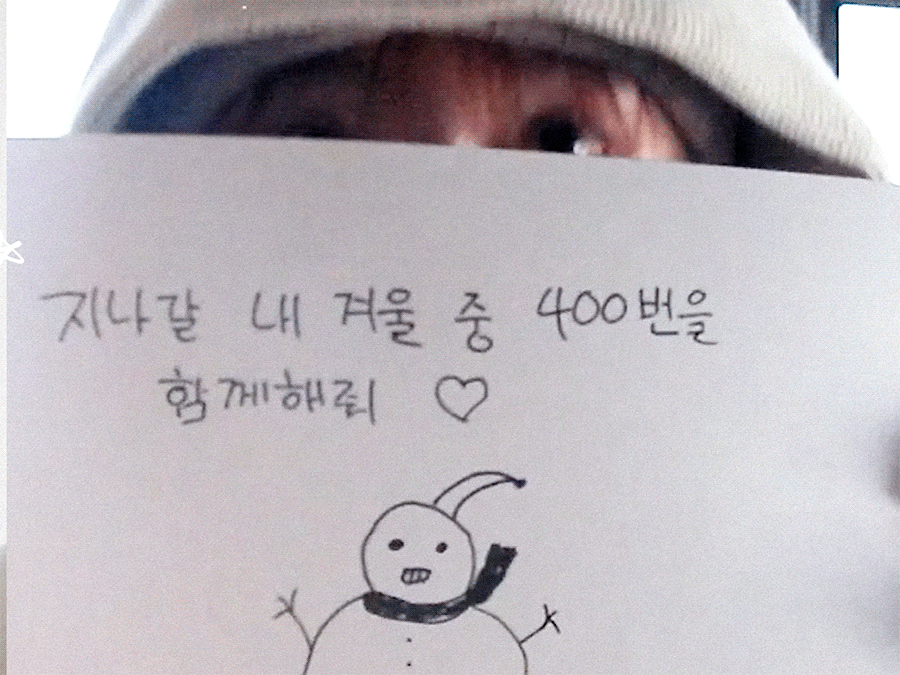 지나갈 내 겨울 중 400번을
함께해줘 ♡